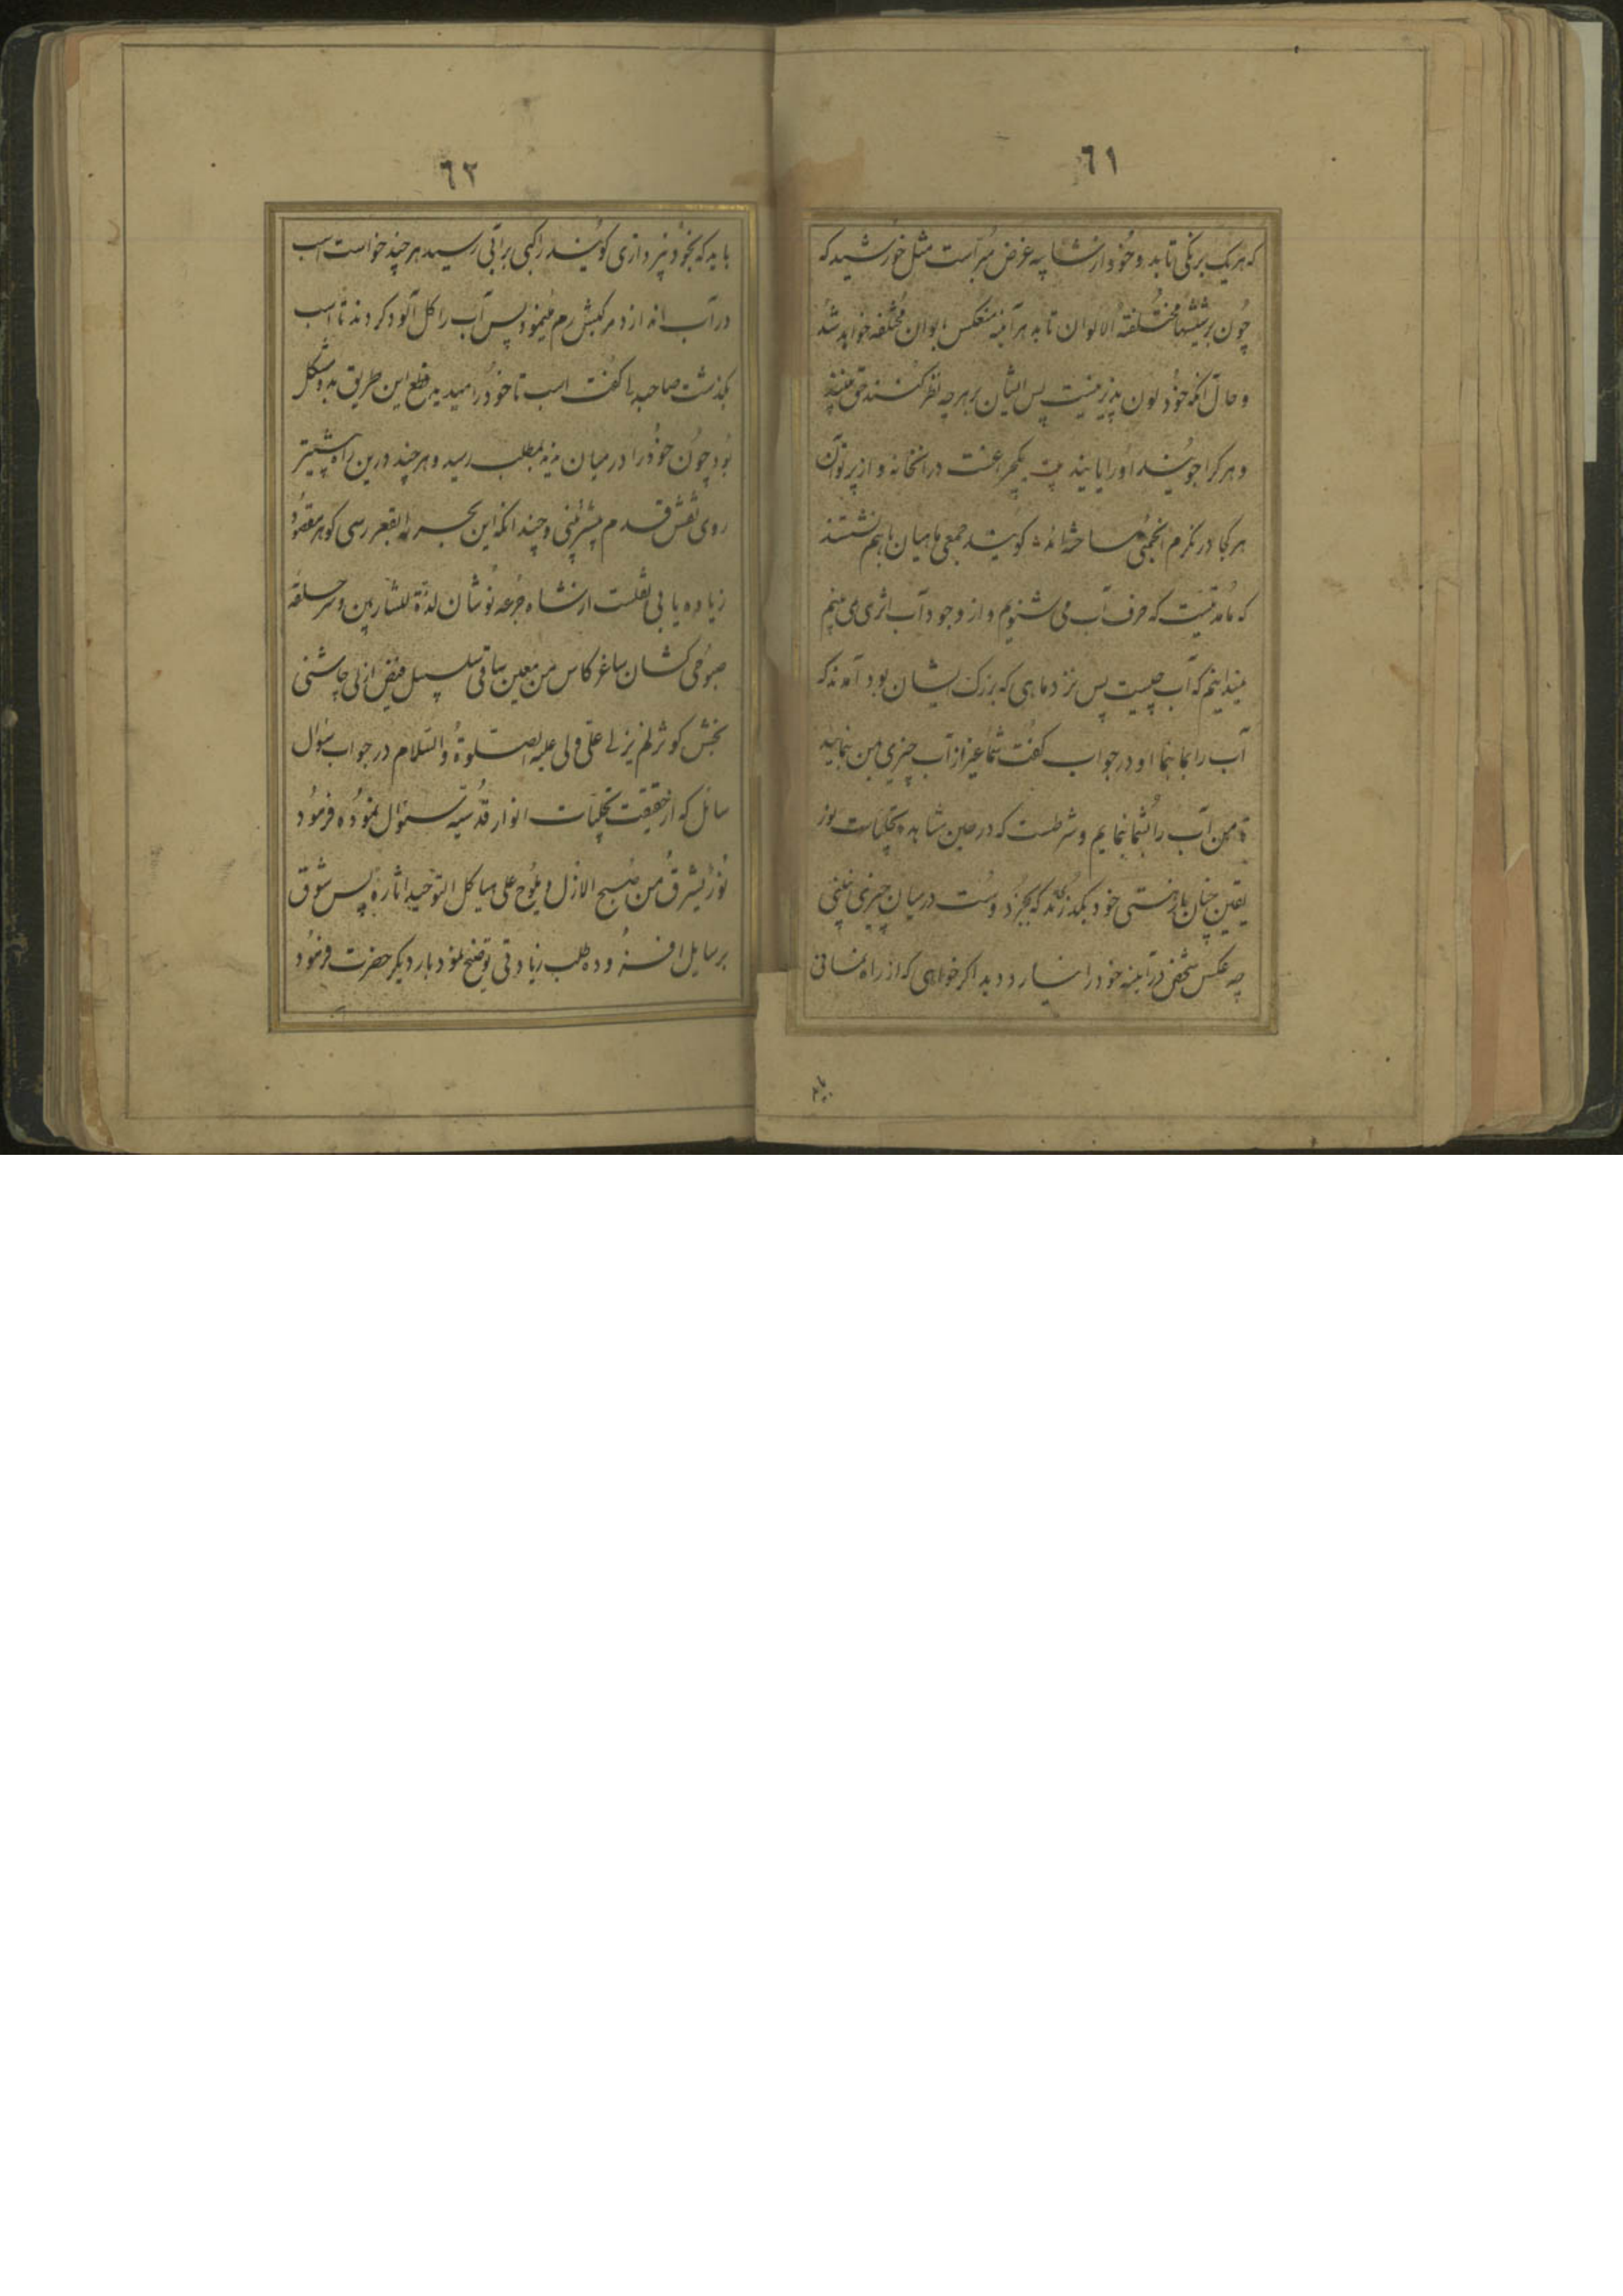 ٦١
که هر یک برنکی تابد و خود از شایبه عرض مبراست مثل خورشید که
چون بر شیشهای مختلفة الالوان تابد هر آینه منعکس بالوان مختلفه خواهد شد
و حال آنکه خود لون پذیر نیست پس ایشان بهر چه نظر کنند حق بینند
و هر کرا جویند او را یابند یک چراغست درین خانه و از پرتو آن
هر کجا در نکرم انجمنی ساخته‌اند کویند جمعی ماهیان باهم نشستند
که ما مدتیست که حرف آب می شنویم و از وجود آب اثری نمی بینم
نمیدانیم که آب چیست پس نزد ماهی که بزرک ایشان بود آمدند که
آب را بما بنما او در جواب کفت شما غیر از آب چیزی بمن بنمائید
تا من آب را بشما بنمایم و شرطست که در حین مشاهده تجلیات نور
یقین چنان باید از هستی خود بکذرند که بجز دوست در میان چیزی نبینی
چه عکس شخص در آینه خود را نیارد دید اکر خواهی که از راه نمانی
باید
٦٢
باید که بخود نپردازی کویند راکبی بر آبی رسید هر چند خواست اسب
در آب اندازد مرکبش رم مینمود پس آب را کل آلود کردند تا اسب
بکذشت صاحبدلی کفت اسب تا خود را میدید قطع این طریق بدو مشکل
بود چون خود را در میان ندید بمطلب رسید و هر چند درین راه پیشتر
روی نقش قدم بیشتر بینی و چندانکه این بحر را بقعر رسی کوهر مقصود
زیاده یابی نقلست از شاه جرعه نوشان لذة للشاربین و سر حلقه
صبوحی کشان ساغر کاس من معین ساقی سلسبیل فیض ازلی چاشنی
بخش کوثر لم یزلی علی ولی علیه الصلوة والسلام در جواب سوال
سائل که از حقیقت تجلیات انوار قدسیه سئوال نموده فرمود
نور یشرق من صبح الازل و یلوح علی هیاکل التوحید آثاره پس شوق
بر سایل افزوده طلب زیادتی توضیح نمود بار دیکر حضرت فرمود